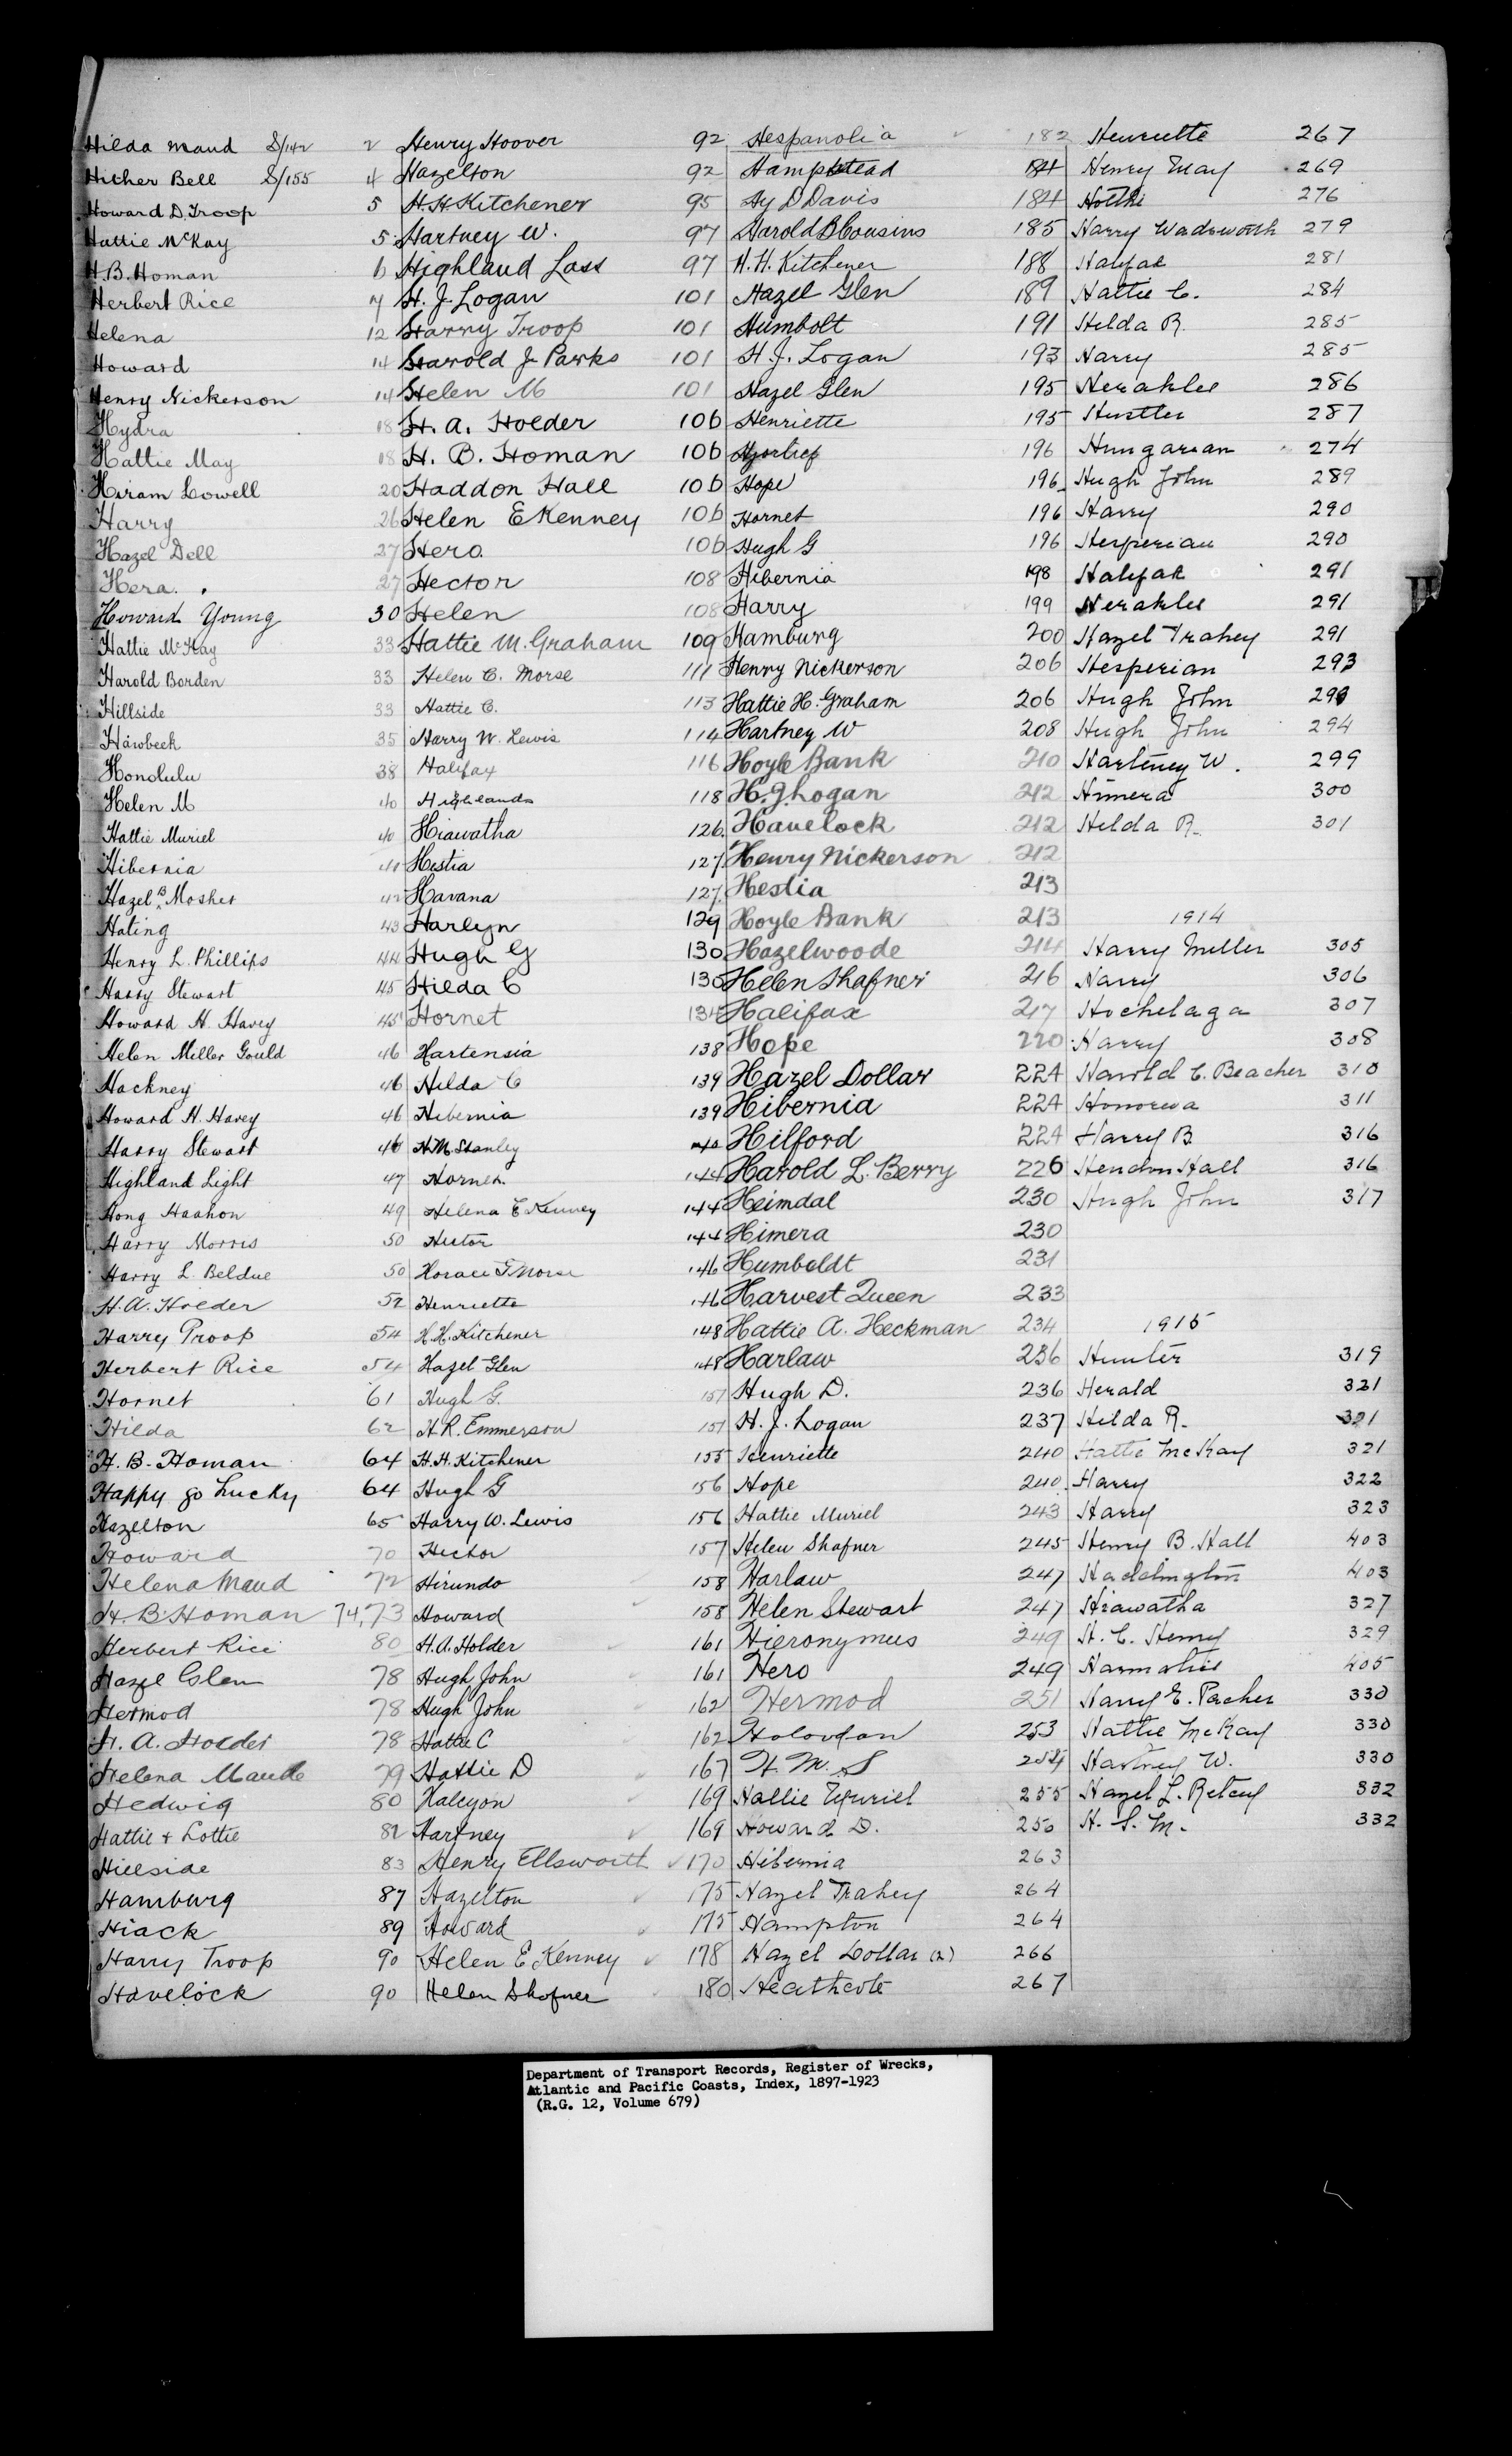 Hilda Maud S/142 2
Hither Bell S/155 4
Howard D. Troop 5
Hattie McKay 5
H.B. Homan 6
Herbert Rice 7
Helena 12
Howard 14
Henry Nickerson 14
Hydra 18
Hattie May 18
Hiram Lowell 20
Harry 26
Hazel Dell 27
Hera. 27
Howard Young 30
Hattie McKay 33
Harold Borden 33
Hillside 33
Hawbeck 35
Honolulu 38
Helen M 40
Hattie Muriel 40
Hibernia 41
Hazel B Mosher 42
Hating 43
Henry L. Phillips 44
Harry Stewart 45
Howard H. Havey 45
Helen Miller Gould 46
Hackney 46
Howard H. Havey 46
Harry Stewart 46
Highland Light 47
Hong Haahon 49
Harry Morris 50
Harry L. Beldue 50
H.A. Holder 52
Harry Troop 54
Herbert Rice 54
Hornet 61
Hilda 62
H. B. Homan 64
Happy go Lucky 64
Hazelton 65
Howard 70
Helena Maud 72
H. B. Homan 74,73
Herbert Rice 80
Hazel Glen 78
Hermod 78
H. A. Holder 78
Helena Maude 79
Hedwig 80
Hattie + Lottie 82
Hillside 83
Hamburg 87
Hiack 89
Harry Troop 90
Havelock 90
Henry Hoover 92
Hazelton 92
H.H. Kitchener 95
Hartney W. 97
Highland Lass 97
H. J. Logan 101
Harry Troop 101
Harold J. Parks 101
Helen M 101
H. A. Holder 106
H. B. Homan 106
Haddon Hall 106
Helen E Kenney 106
Hero. 106
Hector 108
Helen 108
Hattie M. Graham 109
Helen C. Morse 111
Hattie C. 113
Harry W. Lewis 114
Halifax 116
Highlands 118
Hiawatha 126
Hestia 127
Havana 127
Harlyn 129
Hugh G 130
Hilda C 130
Hornet 134
Hartensia 138
Hilda C 139
Hibernia 139
H M Stanley 140
Hornet. 144
Helena E Kenney 144
Hector 144
Horace G Morse 146
Henriette 146
H.H. Kitchener 148
Hazel Glen 148
Hugh G. 151
H.R. Emmerson 151
H.H. Kitchener 155
Hugh G 156
Harry W. Lewis 156
Hector 157
Hirundo 158
Howard 158
H.A. Holder 161
Hugh John 161
Hugh John 162
Hattie C 162
Hattie D 167
Halcyon 169
Hartney 169
Henry Ellsworth 170
Hazelton 175
Howard 175
Helen E Kenney 178
Helen Shafner 180
Hespanolia 182
Hampstead 184
Hy D Davis 184
Harold B Cousins 185
H. H. Kitchener 188
Hazel Glen 189
Humbolt 191
H. J. Logan 193
Hazel Glen 195
Henriette 195
Hjortief 196
Hope 196
Hornet 196
Hugh G 196
Hibernia 198
Harry 199
Hamburg 200
Henry Nickerson 206
Hattie H. Graham 206
Hartney W 208
Hoyle Bank 210
H. J. Logan 212
Havelock 212
Henry Nickerson 212
Hestia 213
Hoyle Bank 213
Hazelwoode 214
Helen Shafner 216
Halifax 217
Hope 220
Hazel Dollar 224
Hibernia 224
Hilford 224
Harold L. Berry 226
Heimdal 230
Himera 230
Humboldt 231
Harvest Queen 233
Hattie A. Heckman 234
Harlaw 236
Hugh D. 236
H. J. Logan 237
Henriette 240
Hope 240
Hattie Muriel 243
Helen Shafner 245
Harlaw 247
Helen Stewart 247
Hieronymus 249
Hero 249
Hermod 251
Holovdon 253
H. M. S 254
Hallie Muriel 255
Howard D. 256
Hibernia 263
Hazel Trahey 264
Hampton 264
Hazel Dollar (2) 266
Heathcote 267
Henriette 267
Henry May 269
276
Harry Wadsworth 279
Halifax 281
Hattie C. 284
Hilda R. 285
Harry 285
Heraklee 286
Hustler 287
Hungarian 274
Hugh John 289
Harry 290
Hesperian 290
Halifax 291
Heraklee 291
Hazel Trahey 291
Hesperian 293
Hugh John 293
Hugh John 294
Hartney W. 299
Himera 300
Hilda R. 301
1914
Harry Miller 305
Harry 306
Hochelaga 307
Harry 308
Harold C. Beacher 310
Honoreva 311
Harry B 316
Hendon Hall 316
Hugh John 317
1915
Hunter 319
Herald 321
Hilda R. 321
Hattie McKay 321
Harry 322
Harry 323
Henry B. Hall 403
Haddington 403
Hiawatha 327
H. C. Henry 329
Harmatris 405
Harry E. Pacher 330
Hattie McKay 330
Hartney W. 330
Hazel L. Ritcey 332
H. S. M. 332
Department of Transport Records, Register of Wrecks,
Atlantic and Pacific Coasts, Index, 1897-1923
(R.G. 12, Volume 679)